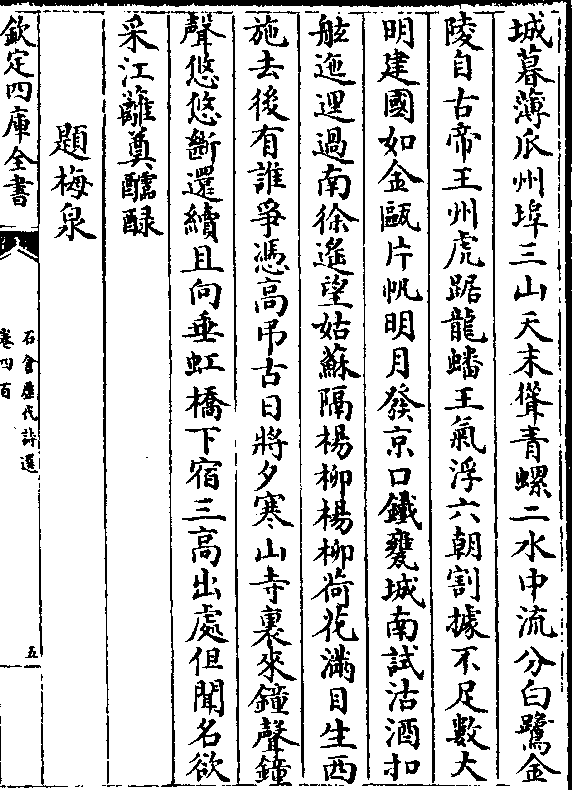 城暮薄瓜州埠三山天末聳青螺二水中流分白鷺金
陵自古帝王州虎踞龍蟠王氣浮六朝割據不足數大
明建國如金甌片帆明月發京口鐵甕城南試沽酒扣
舷迤逦過南徐遙望姑蘇隔楊柳楊柳荷花滿目生西
施去後有誰爭憑高弔古日將夕寒山寺裏來鐘聲鐘
聲悠悠斷還續且向垂虹橋下宿三高出處但聞名欲
采江蘺奠醽醁
題梅泉
欽定四庫全書
石倉歷代詩選
卷四百
五